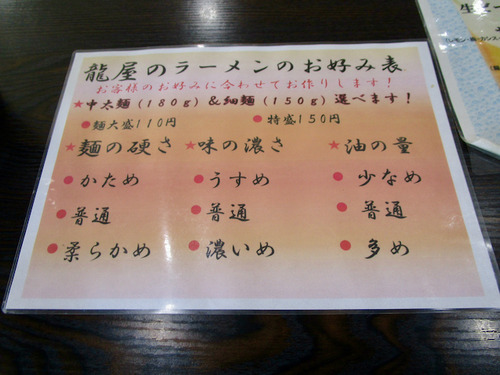 龍屋のラーメンのお好み表
お客様のお好みに合わせてお作りします!
★中太麺(180g)&細麺(150g)選べます!
●麺大盛110円 ●特盛150円
★麺の硬さ ★味の濃さ ★油の量
●かため ●うすめ ●少なめ
●普通 ●普通 ●普通
●柔らかめ ●濃いめ ●多め